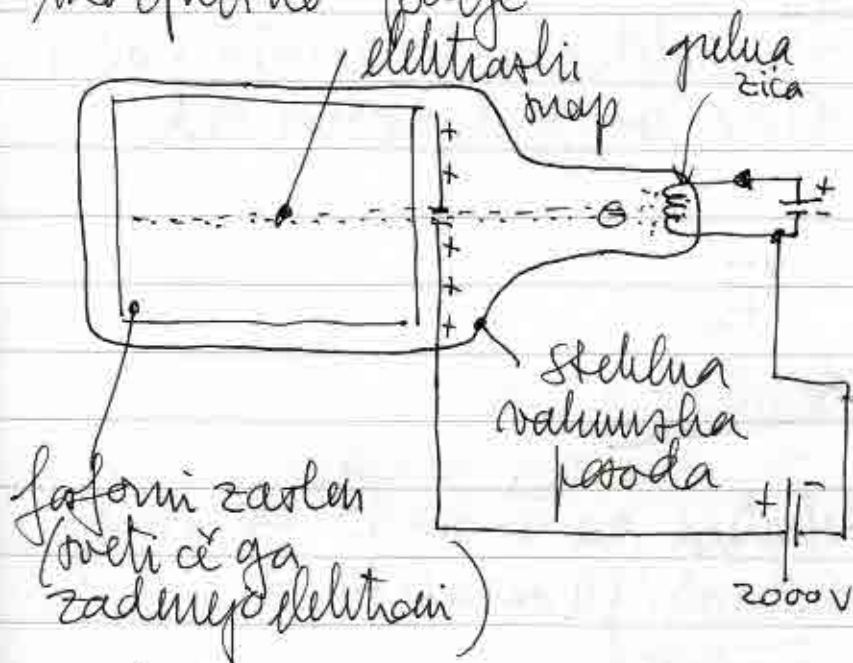 magnetno polje
elektronski
snap
grelna
žica
steklena
vakuumska
posoda
fosforni zaslon
(sveti če ga
zadenejo elektroni)
+ -
2000V